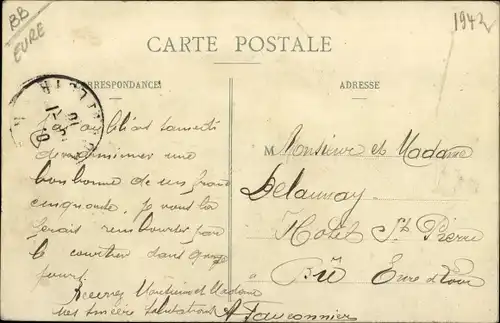 BB
EURE
1942
CARTE POSTALE
CORRESPONDANCE
ADRESSE
J'ai oublié samedi
de demander une
bonbonne de un franc
cinquante. Je vous la
ferais rembourser par
le courtier dans
jours
Recevez Monsieur et Madame
mes sincère salutations
A Fauconnier
M Monsieur et Madame
Delaunay
Hotel St Pierre
à Bû Eure et Loir